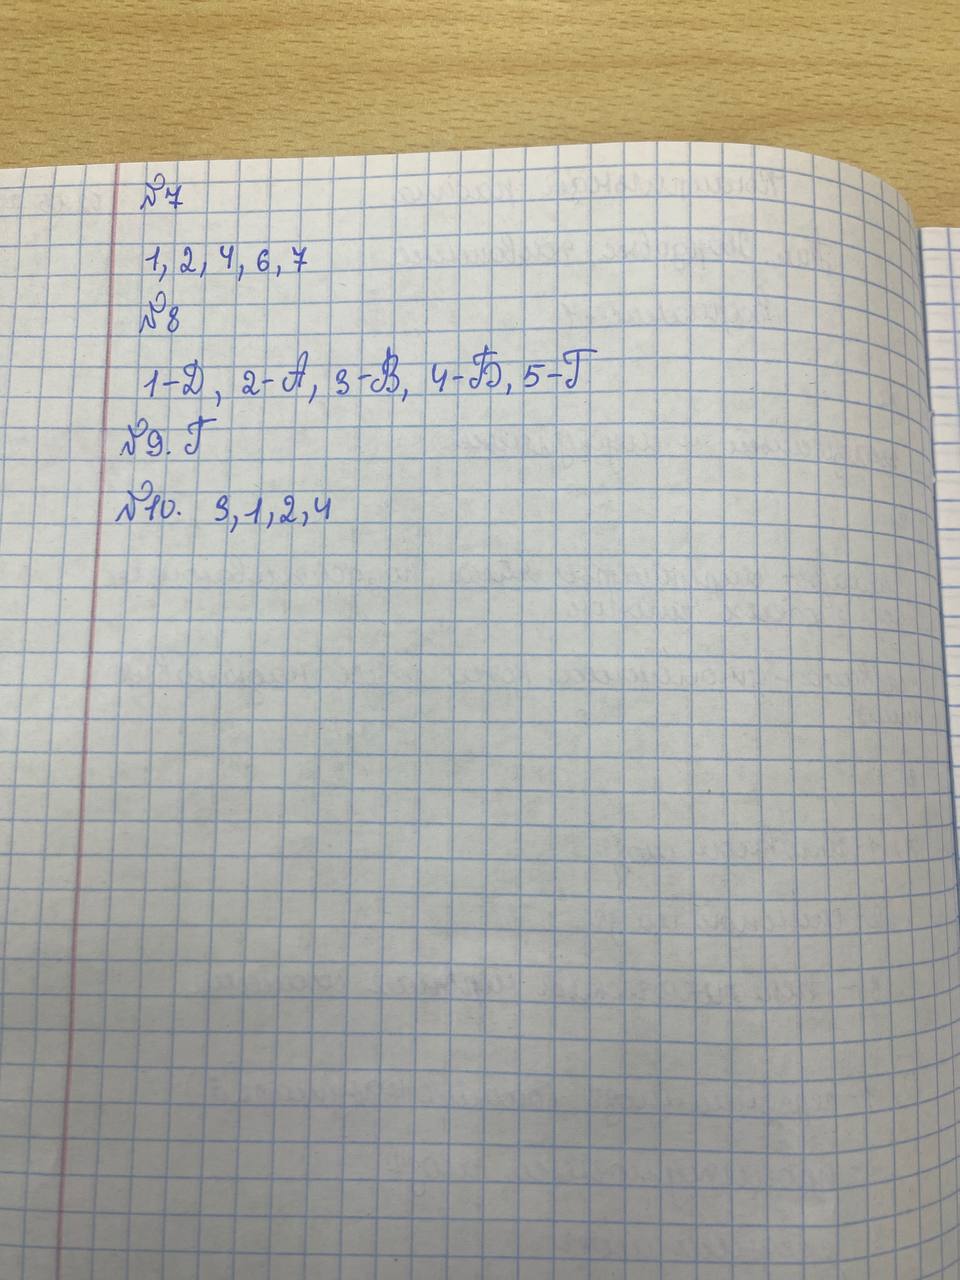 №7
1, 2, 4, 6, 7
№8
1-Д, 2-А, 3-В, 4-Б, 5-Г
№9. Г
№10. 3, 1, 2, 4